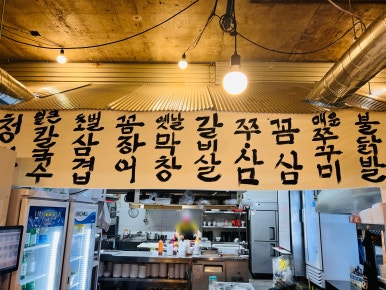 청
얼큰
칼국수
초벌
삼겹
꼼장어
옛날
막창
갈비살
쭈.삼
꼼삼
매운
쭈꾸미
불닭발